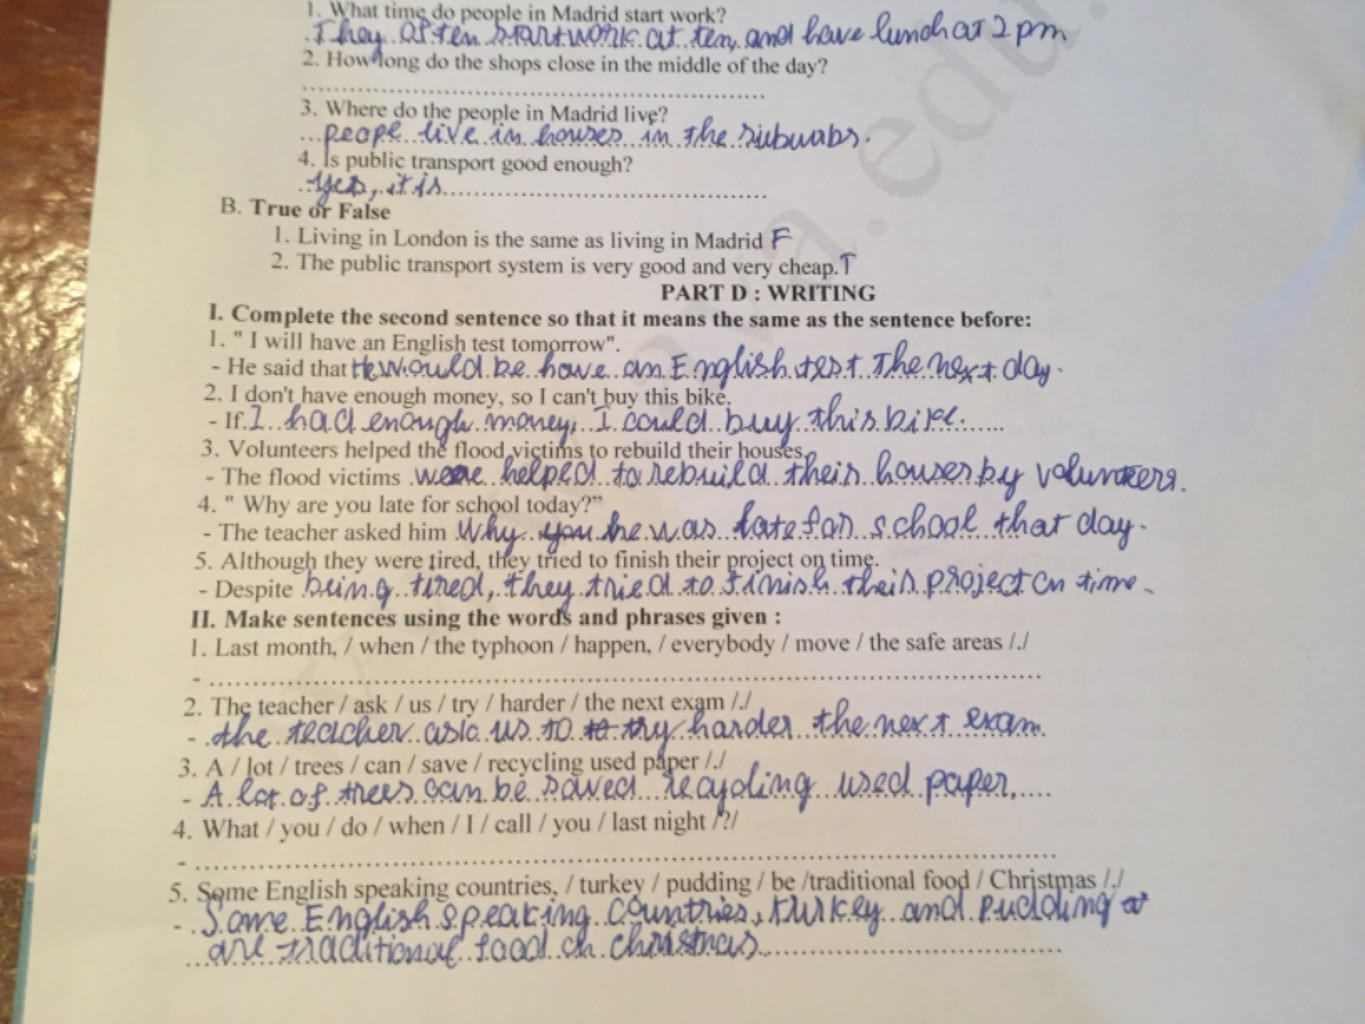 1. What time do people in Madrid start work?
They often start work at ten, and have lunch at 2 pm
2. How long do the shops close in the middle of the day?
3. Where do the people in Madrid live?
peopl live in houses in the suburbs.
4. Is public transport good enough?
yes, it is
B. True or False
1. Living in London is the same as living in Madrid F
2. The public transport system is very good and very cheap. T
PART D : WRITING
I. Complete the second sentence so that it means the same as the sentence before:
1. " I will have an English test tomorrow".
- He said that He would be have an English test The next day.
2. I don't have enough money, so I can't buy this bike.
- If I had enough money, I could buy this bike.
3. Volunteers helped the flood victims to rebuild their houses.
- The flood victims were helped to rebuild their houses by volunteers.
4. " Why are you late for school today?"
- The teacher asked him Why you he was late for school that day.
5. Although they were tired, they tried to finish their project on time.
- Despite being tired, they tried to finish their project on time.
II. Make sentences using the words and phrases given :
1. Last month, / when / the typhoon / happen, / everybody / move / the safe areas /./
-
2. The teacher / ask / us / try / harder / the next exam /./
- the teacher ask us to to try harder the next exam.
3. A / lot / trees / can / save / recycling used paper /./
- A lot of trees can be saved recycling used paper.
4. What / you / do / when / I / call / you / last night /?/
-
5. Some English speaking countries, / turkey / pudding / be /traditional food / Christmas /./
- Some English speaking countries, turkey and pudding
are traditional food on christmas